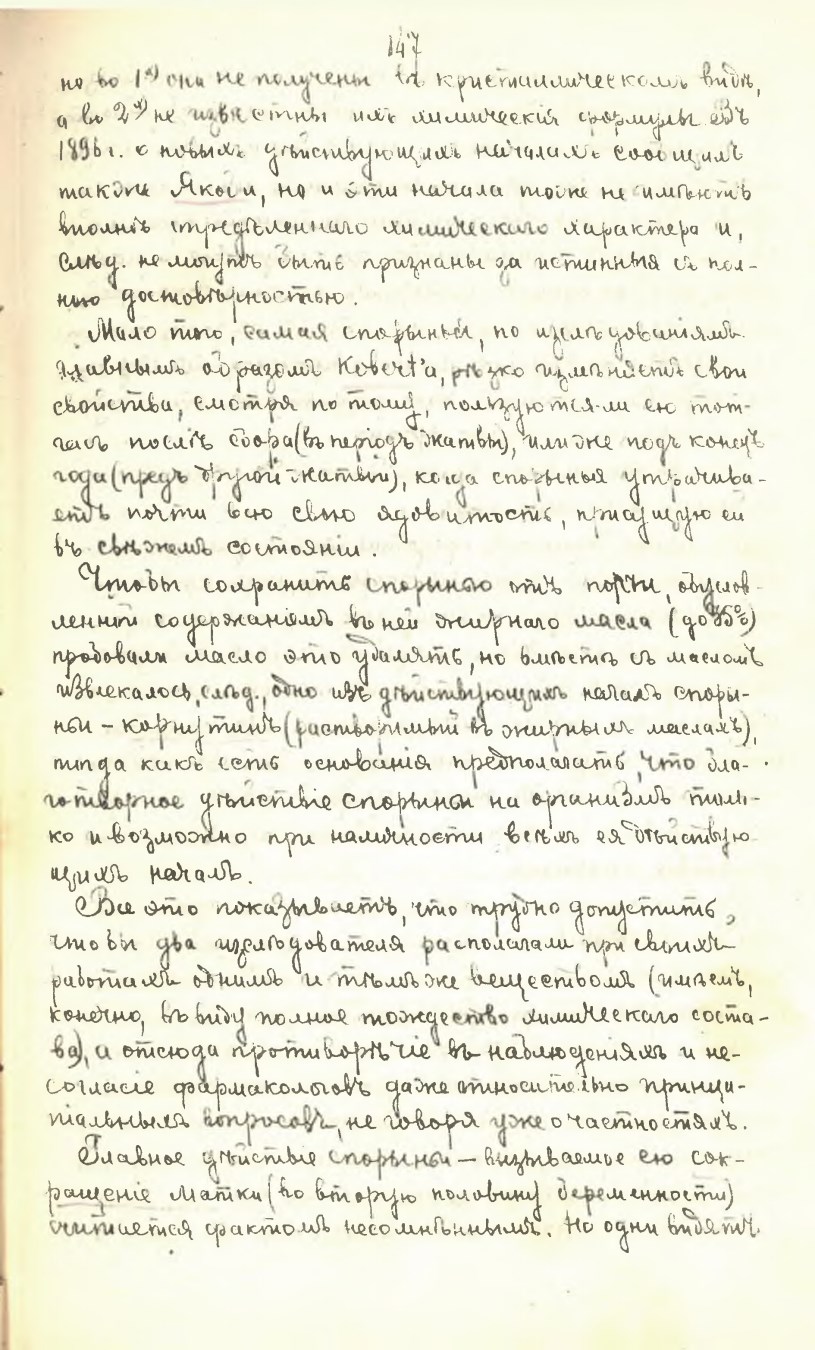 147
но во 1ᵃ) они не получены въ кристаллическомъ видѣ,
а во 2ᵃ) не извѣстны ихъ химическія формулы. Въ
1896 г. о новыхъ дѣйствующихъ началахъ сообщилъ
также Якоби, но и эти начала тоже не имѣютъ
вполнѣ опредѣленнаго химическаго характера и,
слѣд. не могутъ быть признаны за истинныя съ пол-
ною достовѣрностью.
Мало того, самая спорынья, по изслѣдованіямъ
главнымъ образомъ Kobert'а, рѣзко измѣняетъ свои
свойства, смотря по тому, пользуются-ли ею тот-
часъ послѣ сбора (въ періодъ жатвы), или же подъ конецъ
года (предъ другой жатвой), когда спорынья утрачива-
етъ почти всю свою ядовитость, присущую ей
въ свѣжемъ состояніи.
Чтобы сохранить спорынью отъ порчи, обуслов-
ленной содержаніемъ въ ней жирнаго масла (до 35%)
пробовали масло это удалять, но вмѣстѣ съ масломъ
извлекалось, слѣд., одно изъ дѣйствующихъ началъ споры-
ньи – корнутинъ (растворимый въ жирныхъ маслахъ),
тогда какъ есть основанія предполагать, что бла-
готворное дѣйствіе спорыньи на организмъ толь-
ко и возможно при наличности всѣхъ ея дѣйствую-
щихъ началъ.
Все это показываетъ, что трудно допустить,
чтобы два изслѣдователя располагали при своихъ
работахъ однимъ и тѣмъ же веществомъ (имѣемъ,
конечно, въ виду полное тождество химическаго соста-
ва), а отсюда противорѣчіе въ наблюденіяхъ и не-
согласіе фармакологовъ даже относительно принци-
піальныхъ вопросовъ, не говоря уже о частностяхъ.
Главное дѣйствіе спорыньи – вызываемое ею сок-
ращеніе матки (во вторую половину беременности)
считается фактомъ несомнѣннымъ. Но одни видятъ